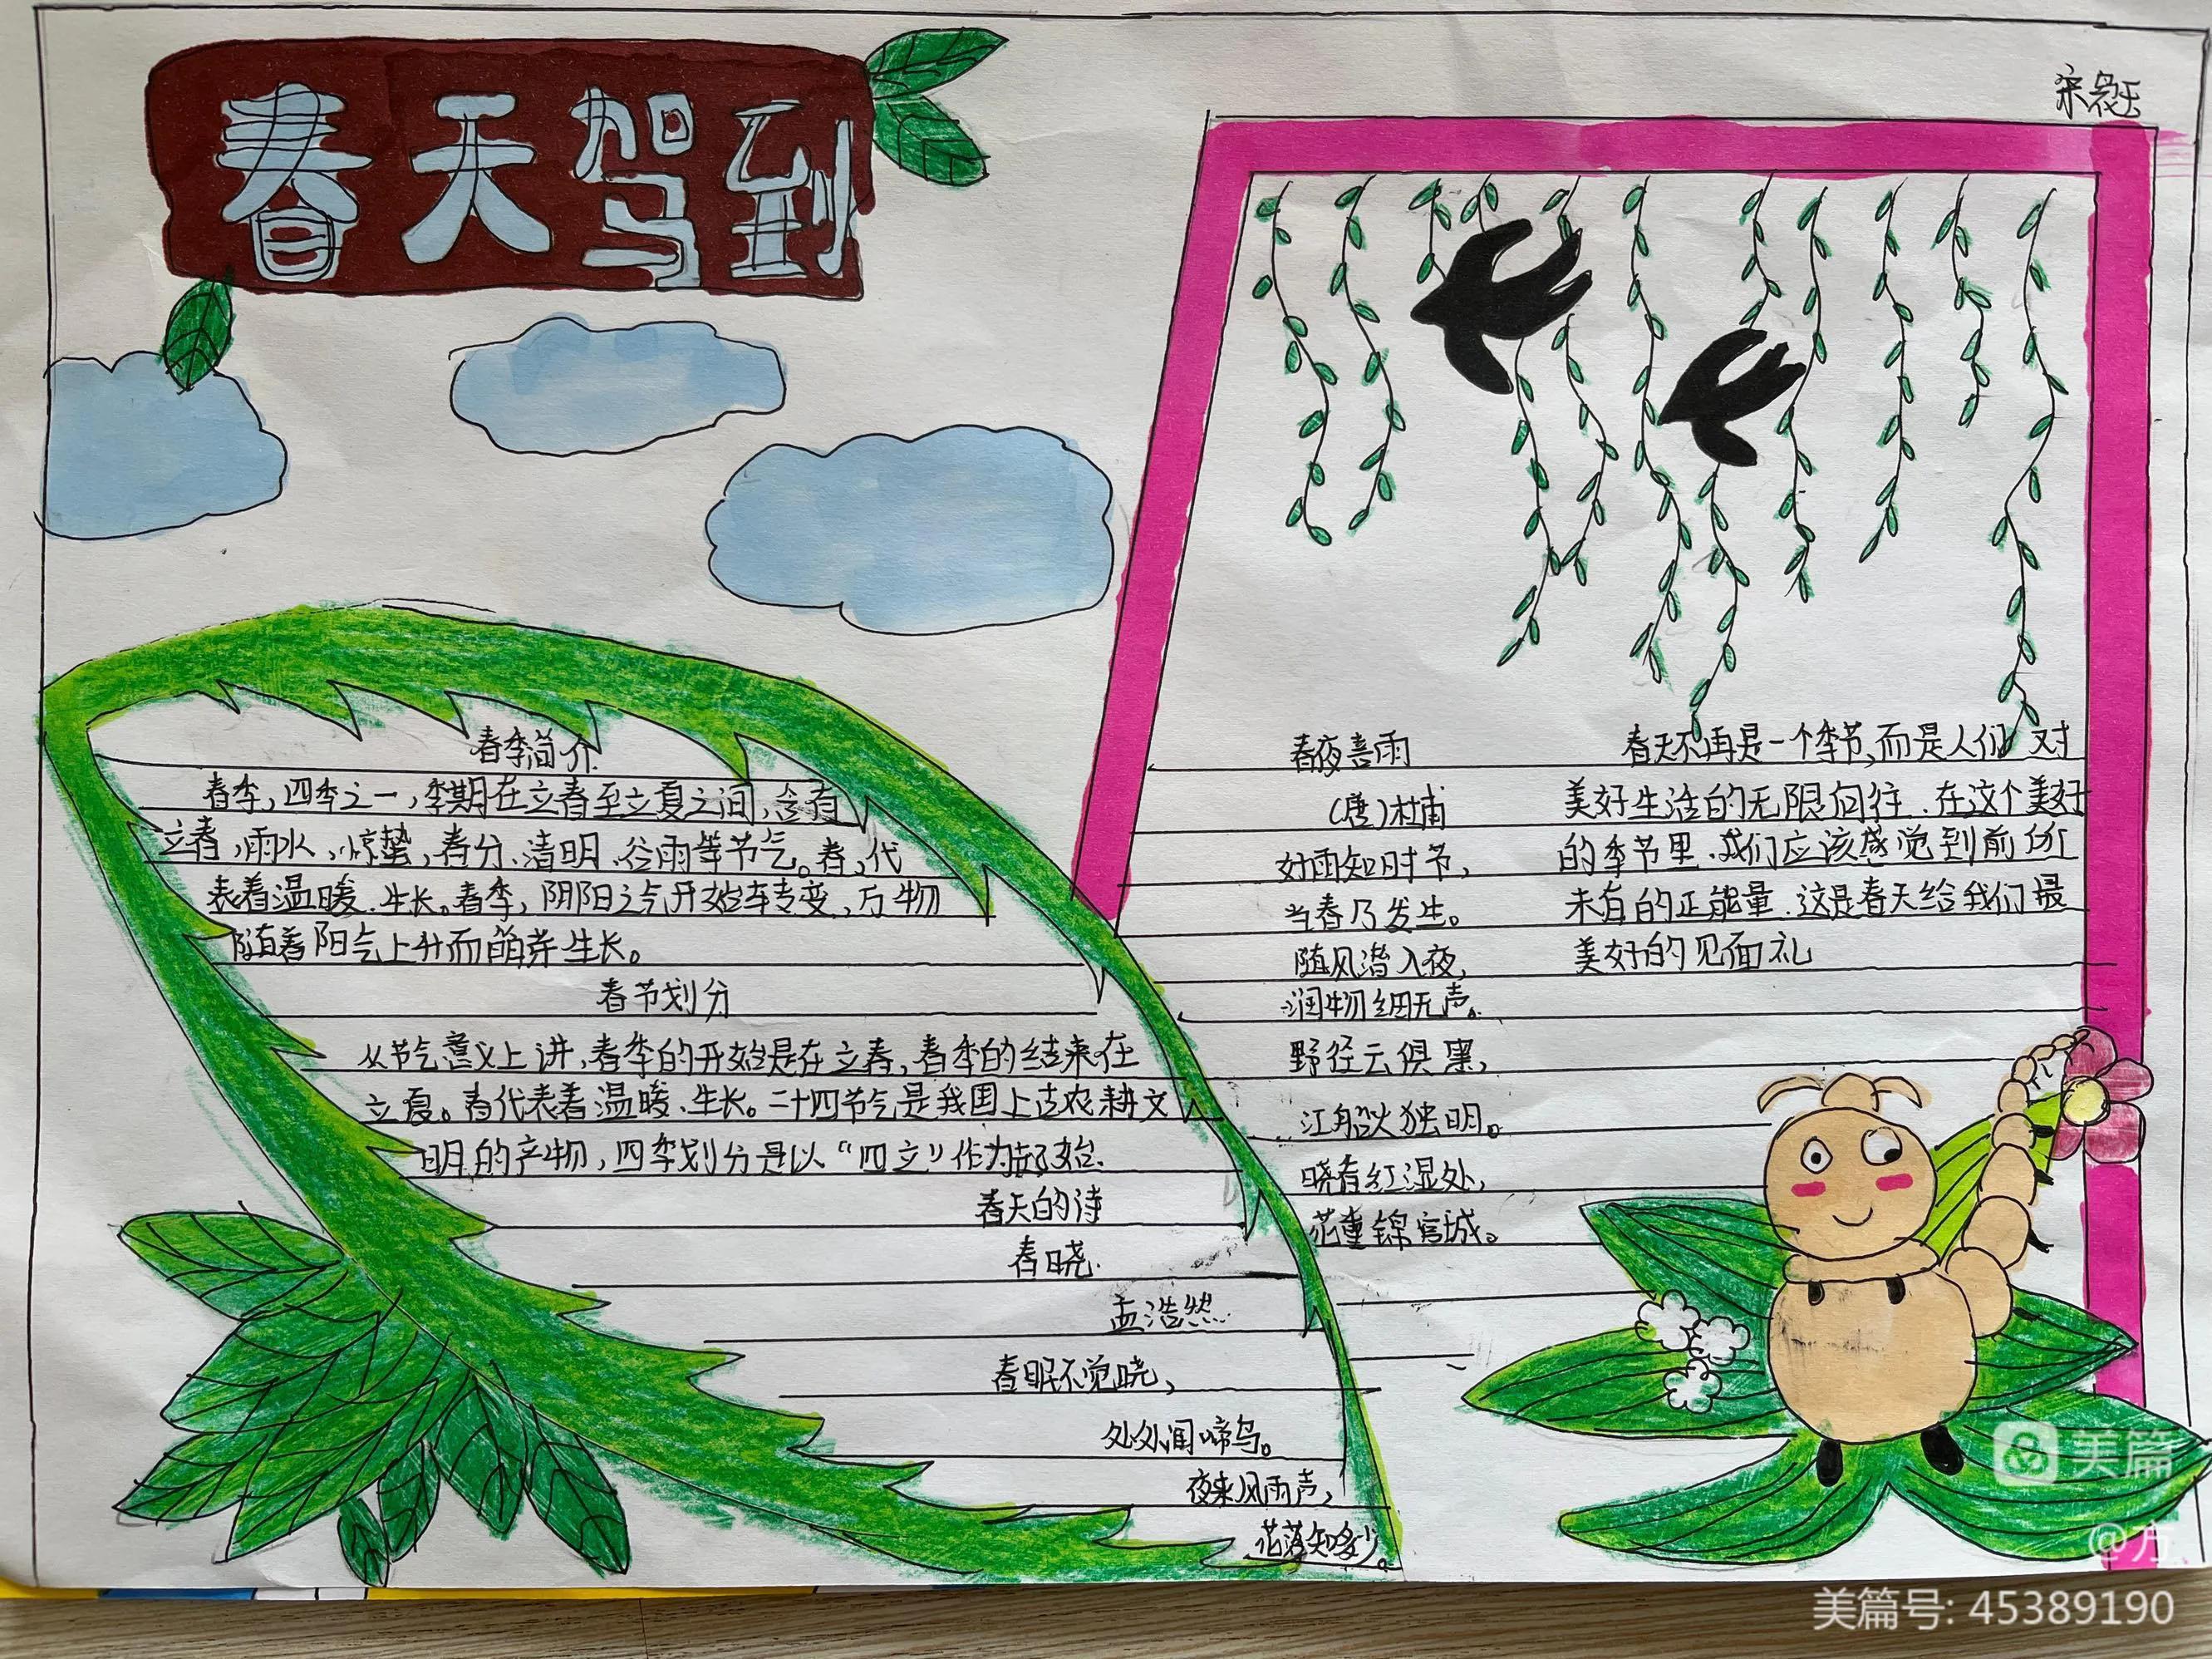 春天驾到
春季简介
春季,四季之一,季期在立春至立夏之间,含有
立春,雨水、惊蛰,春分、清明、谷雨等节气。春,代
表着温暖、生长。春季,阴阳之气开始转变,万物
随着阳气上升而萌芽生长。
春节划分
从节气意义上讲,春季的开始是在立春,春季的结束在
立夏。春代表着温暖、生长。二十四节气是我国上古农耕文
明的产物,四季划分是以“四立”作为起始.
春天的诗
春晓.
孟浩然.
春眠不觉晓,
处处闻啼鸟。
夜来风雨声,
花落知多少。
春夜喜雨
(唐)杜甫
好雨知时节,
当春乃发生。
随风潜入夜,
润物细无声。
野径云俱黑,
江船火独明。
晓看红湿处,
花重锦官城。
春天不再是一个季节,而是人们对
美好生活的无限向往.在这个美好
的季节里.我们应该感觉到前所
未有的正能量.这是春天给我们最
美好的见面礼
美篇
@方
美篇号: 45389190